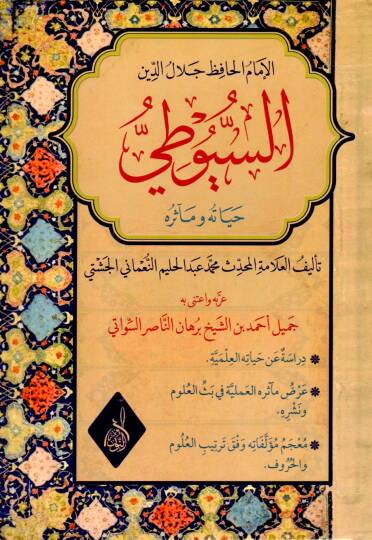 الإمام الحافظ جلال الدين
السُّيُوطيُّ
حياته ومآثره
تأليف العلامة المحدث محمد عبد الحليم النُّعماني الجشتي
عرّبه واعتنى به
جميل أحمد بن الشيخ برهان الناصر السّواتي
❋ دراسةٌ عن حياته العِلميَّة.
❋ عَرْضُ مآثره العمليَّة في بثِّ العُلوم
ونشرِه.
❋ مُعْجَمُ مُؤلَّفاتِه وَفْقَ تَرتيبِ العُلُوم
والحُرُوف.